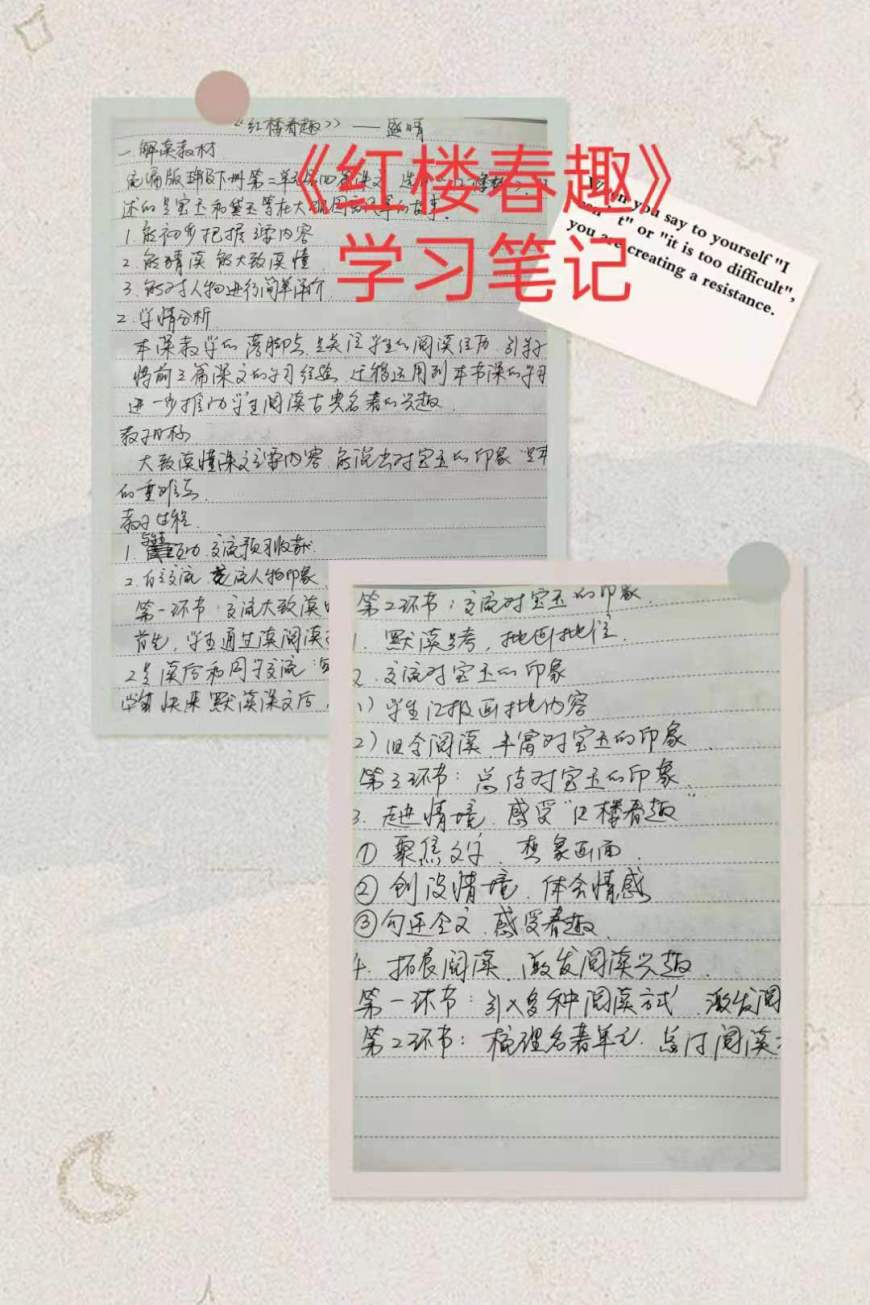 《红楼春趣》
学习笔记
you say to yourself "I
t" or "it is too difficult",
you are creating a resistance.
《红楼春趣》——盛晴
一.解读教材
述的是宝玉和黛玉等在大观园放风筝的故事.
1.能初步把握主要内容
2.能猜读 能大致读懂
3.能对人物进行简单评价
2.学情分析
本课教学的落脚点是关注学生的阅读经历.引导
将前三篇课文的学习经验.迁移运用到本节课的学习
进一步推动学生阅读古典名著的兴趣.
教学目标.
大致读懂课文主要内容.能说出对宝玉的印象
的重难点.
教学过程.
1. 互动.交流预习收获.
2.自主交流. 交流人物印象
第一环节:交流大致读
首先,学生通过读阅读
2是读后和同学交流
默读课文后,
第2环节:交流对宝玉的印象.
1.默读思考,批画批注.
2.交流对宝玉的印象
1)学生汇报画批内容
2)回合阅读.丰富对宝玉的印象.
第3环节:总结对宝玉的印象.
3.走进情境.感受"红楼春趣"
①聚焦文字.想象画面.
②创设情境.体会情感
③勾连全文.感受春趣.
4.拓展阅读.激发阅读兴趣.
第一环节:引入多种阅读方式.激发阅
第2环节:梳理名著单元.总结阅读